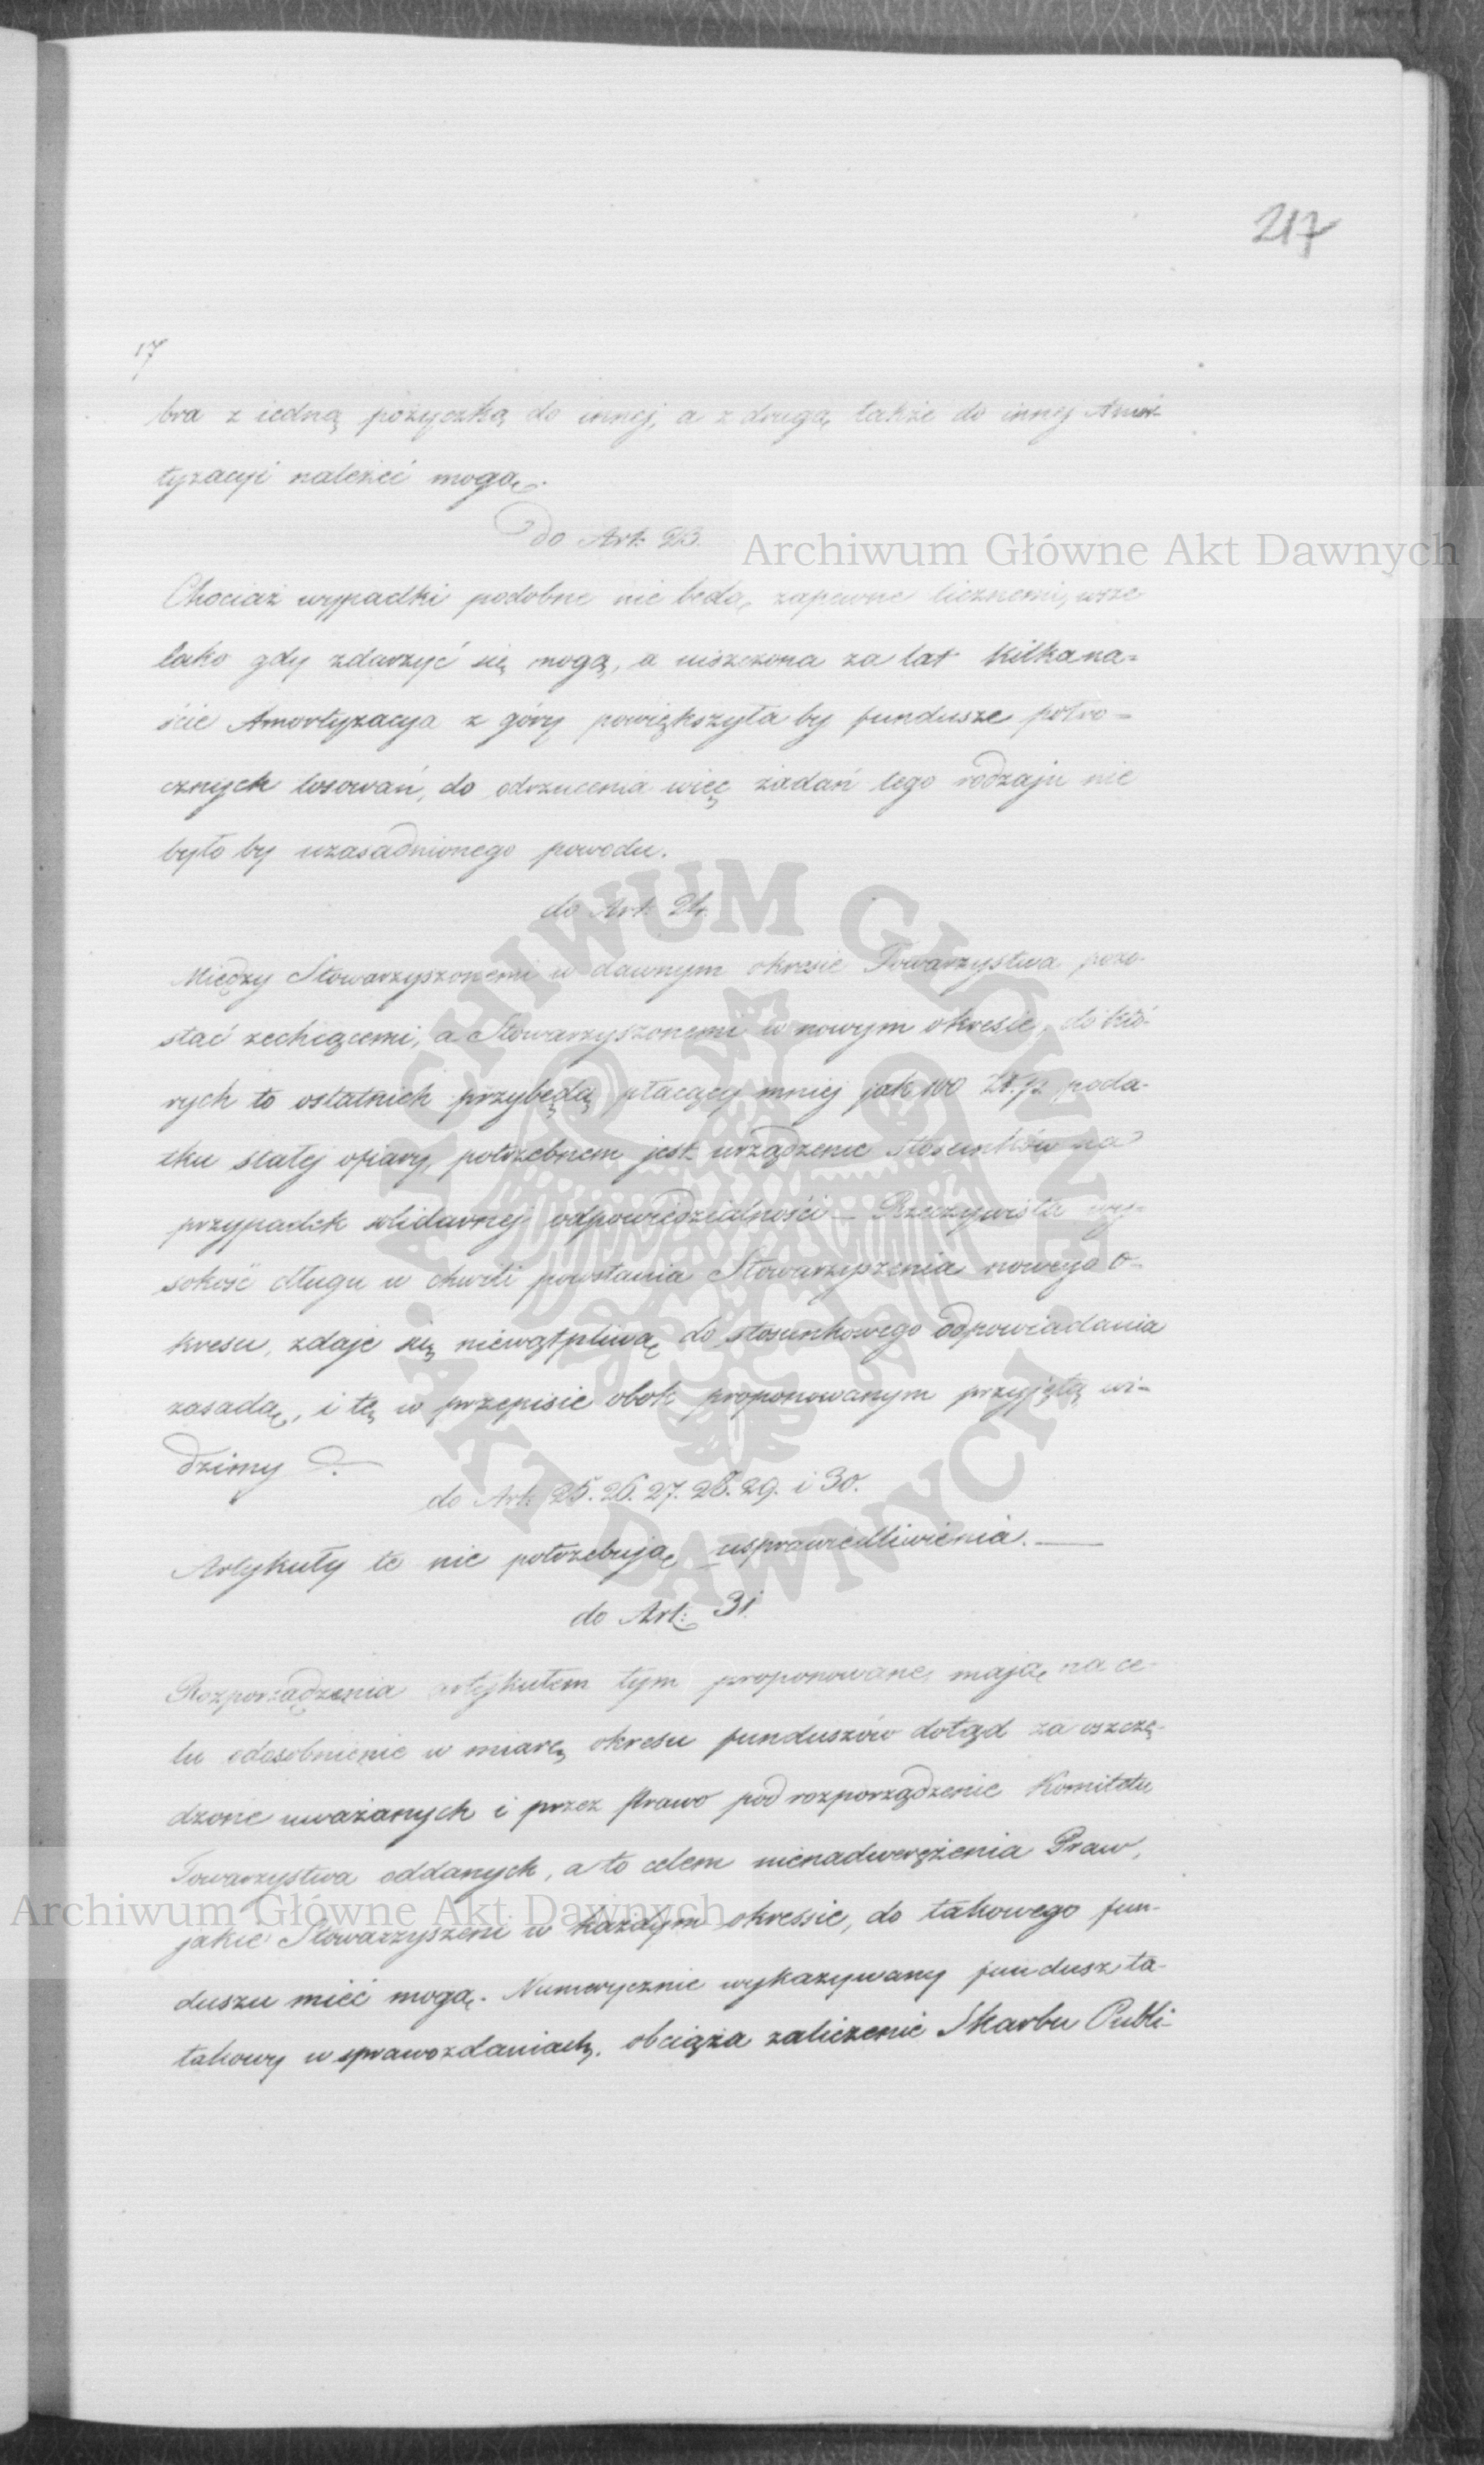 217
17
bra z iedną pożyczką do innej, a z drugą także do innej Amor-
tyzacyi należeć mogą.
do Art: 23.
Archiwum Główne Akt Dawnych
Chociaż wypadki podobne nie będą zapewne licznemi, wsze
lako gdy zdarzyć się mogą, a uiszczona za lat kilkana-
ście Amortyzacya z góry powiększyła by fundusze półro-
cznych losowań, do odrzucenia więc żądań tego rodzaju nie
było by uzasadnionego powodu.
do Art: 24.
Między Stowarzyszonemi w dawnym okresie Towarzystwa pozo-
stać zechcącemi, a Stowarzyszonemi w nowym okresie, do któ-
rych to ostatnich przybędą płacący mniej jak 100 Zł.p. poda-
tku stałej ofiary, potrzebnem jest urządzenie stosunków na
przypadek solidarnej odpowiedzialności — Rzeczywista wy-
sokość długu w chwili powstania Stowarzyszenia nowego o-
kresu, zdaje się niewątpliwą do stosunkowego odpowiadania
zasadą, i tę w przepisie obok proponowanym przyjętą wi-
dzimy.
do Art: 25. 26. 27. 28. 29. i 30.
Artykuły te nie potrzebują usprawiedliwienia. —
do Art: 31.
Rozporządzenia artykułem tym proponowane, mają na ce-
lu odosobnienie w miarę okresu funduszów dotąd za oszczę-
dzone uważanych i przez Prawo pod rozporządzenie Komitetu
Towarzystwa oddanych, a to celem nienadwerężenia Praw,
Archiwum Główne Akt Dawnych
jakie Stowarzyszeni w każdym okressie, do takowego fun-
duszu mieć mogą. Numerycznie wykazywany fundusz ta-
takowy w sprawozdaniach, obciąża zaliczenie Skarbu Publi-
ARCHIWUM GŁÓWNE
AKT DAWNYCH